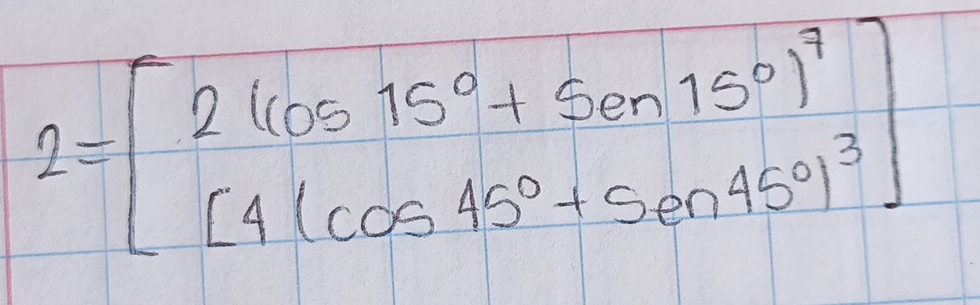 2 = [ 2 (cos 15° + Sen 15°)⁷ ]
[4 (cos 45° + Sen 45°)³